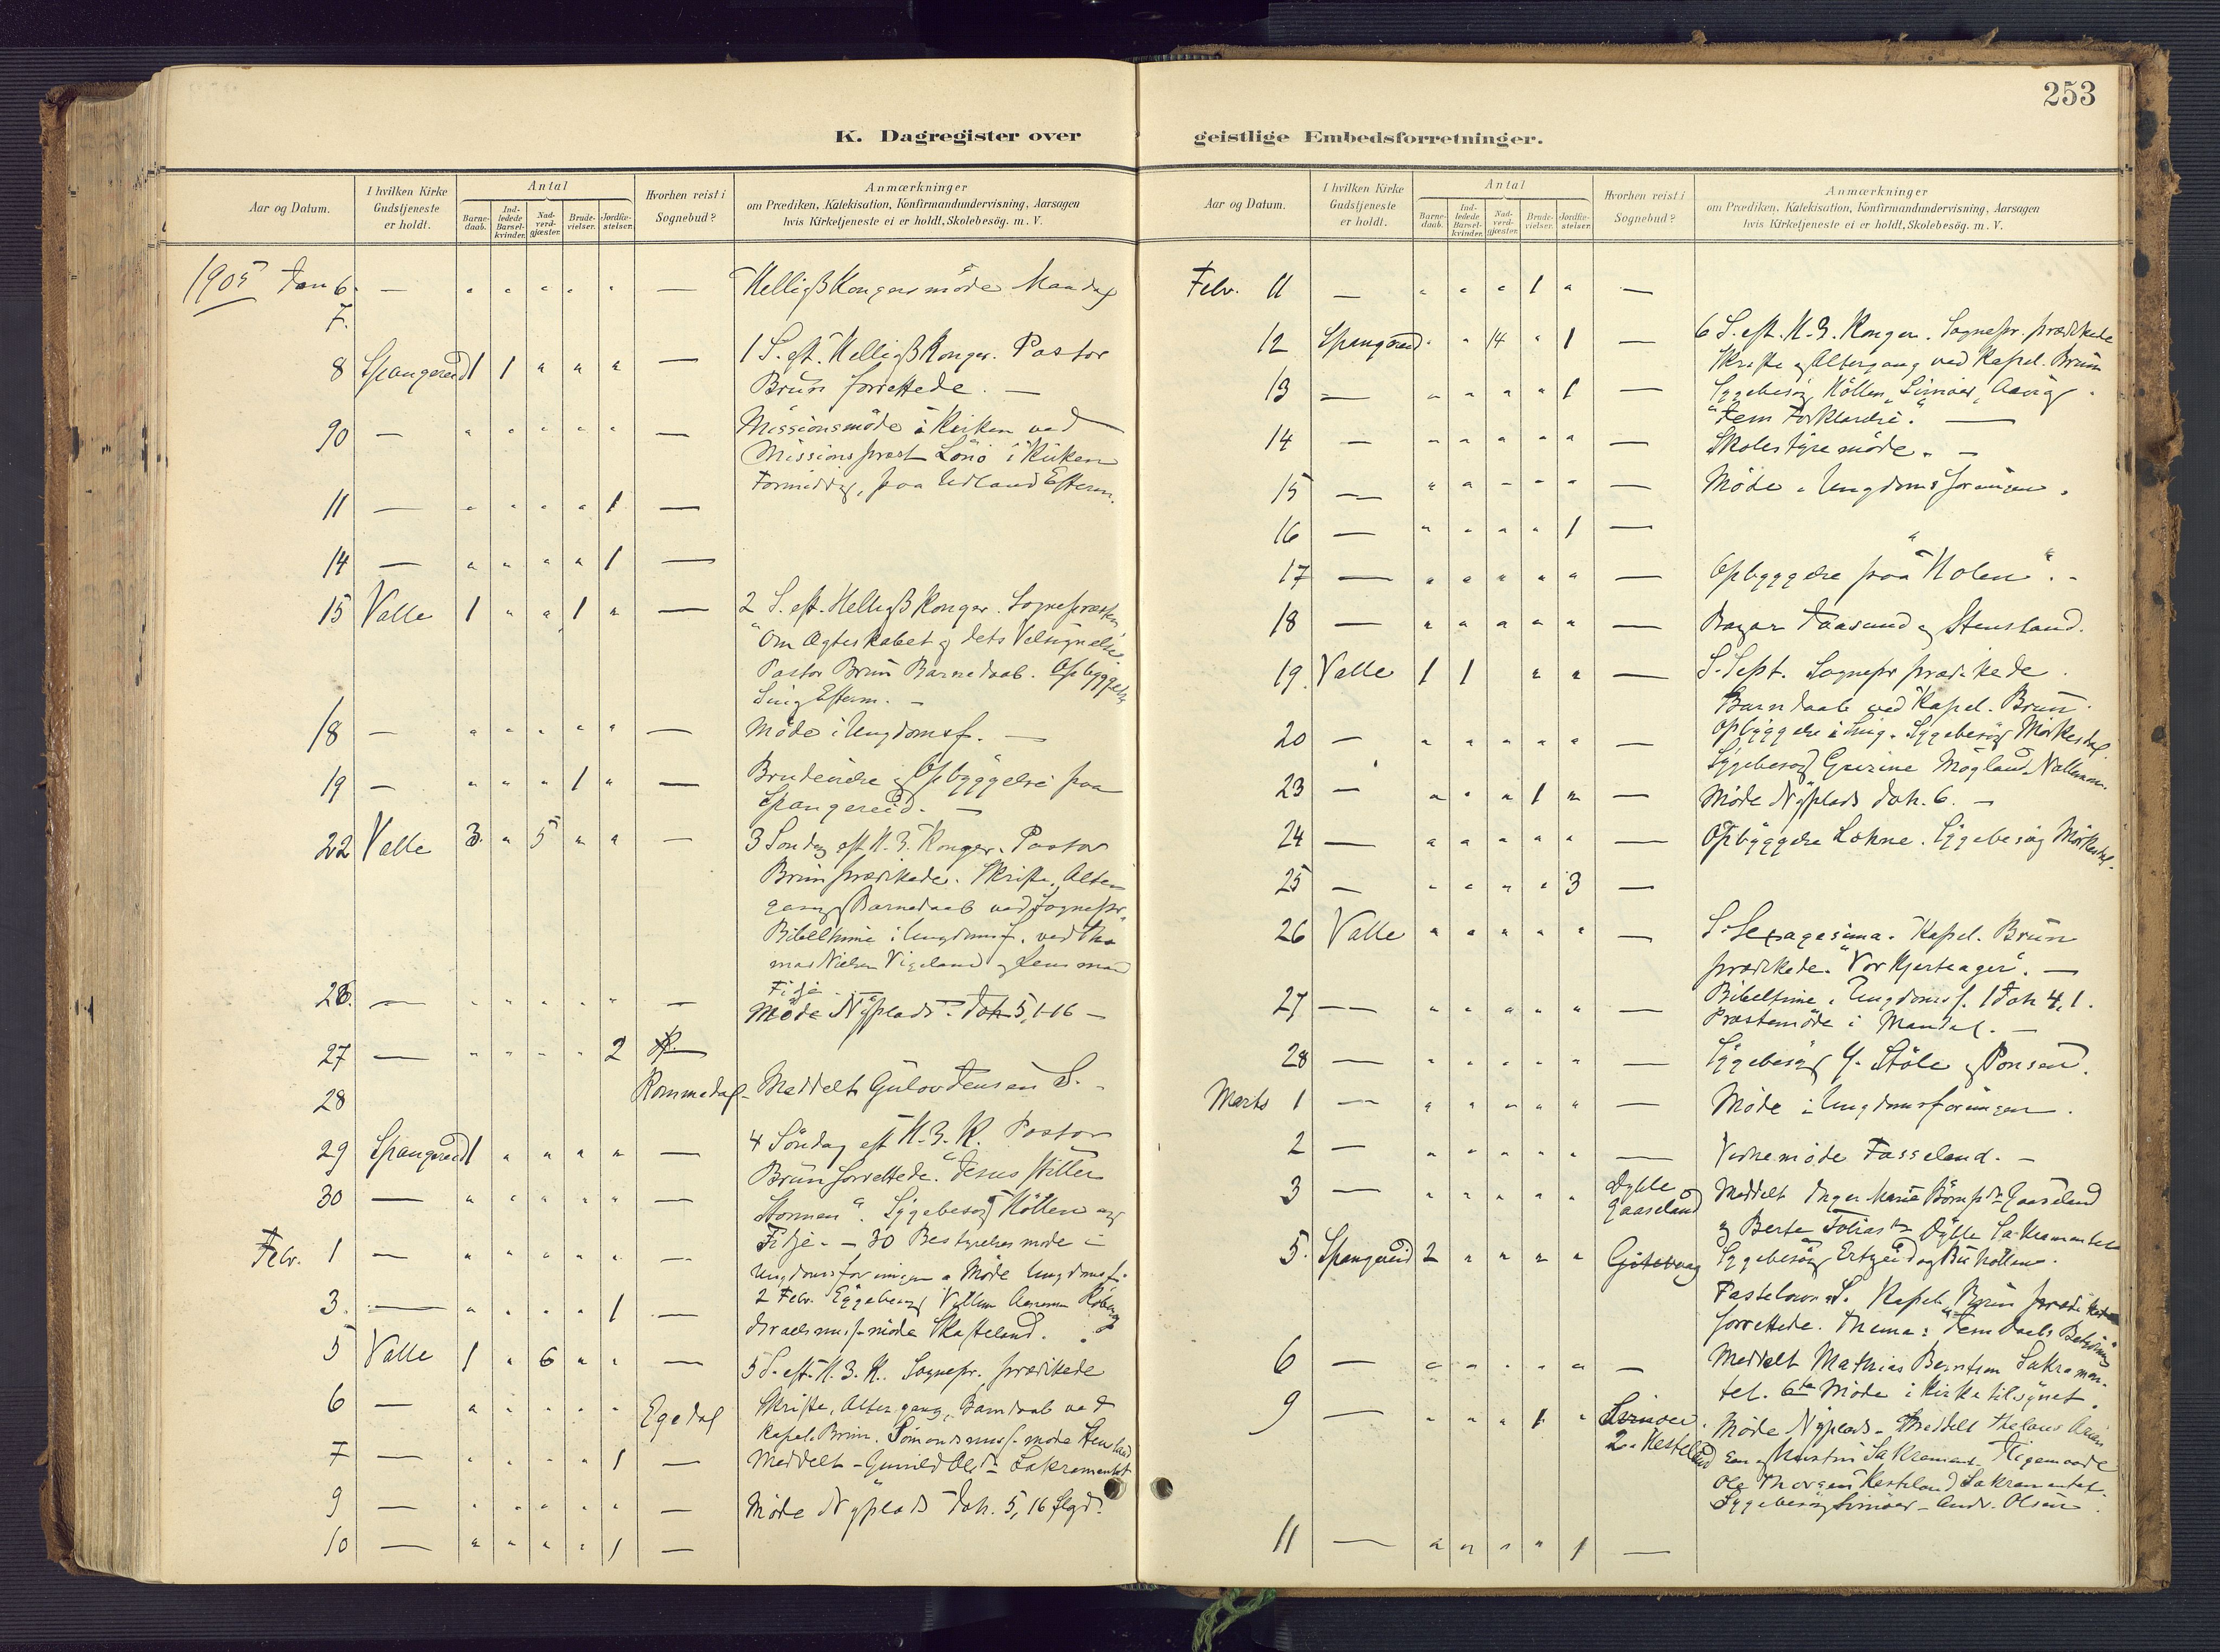 253
K. Dagregister over geistlige Embedsforretninger.
Aar og Datum. I hvilken Kirke Gudstjeneste er holdt. Antal Barnedaab. Indledede Barselkvinder. Nadverdgjæster. Brudevielser. Jordfæstelser. Hvorhen reist i Sognebud? Anmærkninger om Prædiken, Katekisation, Konfirmandundervisning, Aarsagen hvis Kirketjeneste ei er holdt, Skolebesög. m. V.
1905 Jan 6. — " " " " " — Hellig 3 Kongers møde Mandag
7.
8 Spangereid 1 1 " " " — 1 S. eft. Hellig 3 Konger. Pastor
Brün forrettede. —
90 — " " " " " — Missionsmøde i Kirken ved
Missionsprest Lönö i Kirken
Formiddag, paa Udland Efterm.
11 — " " " " 1 —
14 — " " " " 1 —
15 Valle 1 " " 1 " — 2 S. eft. Hellig 3 Konger. Sognepræsten
"Om Ægteskabet og dets Velsignelse"
Pastor Brün Barnedaab. Opbyggelse
Efterm. —
18 — " " " " " — Møde i Ungdomsf. —
19 — " " " 1 " — Brudevielse og Opbyggelse paa
Spangereid. —
22 Valle 3. " 5 " " — 3 Søndag eft H. 3. Konger. Pastor
Brün prædikede. Skrifte, Alter-
gang og Barnedaab ved Sognepr.
Bibeltime i Ungdomsf. ved Tho
mas Nielsen Vigeland og Lensmand
Fidje
26. — " " " " " — Møde Nyplads. Joh 5, 1-16 —
27 — " " " " 2 —
28 Rommedal — Meddelt Gulov Jensen S. -
29 Spangereid 1 " " " " — 4 Søndag eft H. 3. K. Pastor
Brün forrettede. "Jesus stiller
30 — " " " " " — Stormen". Sygebesøg Höllen og
Fidje. — 30 Bestyrelsesmøde i
Febr. 1 — " " " " " — Ungdomsforeningen. Møde Ungdomsf.
2 Febr. Sygebesøg
3. — " " " " 1 — Israelsmiss. møde Skofteland.
5 Valle 1 " 6 " " — 5 S. eft. H. 3. K. Sognepr. prædikede
6 — " " " " " Egedal Skrifte, Altergang, Barndaab ved
Kapel. Brün.
7 — " " " " 1 — Meddelt Sakramentet
9 — " " " " " — Møde Nyplads Joh. 5, 16 flgd.
10 — " " " " 1 —
Aar og Datum. I hvilken Kirke Gudstjeneste er holdt. Antal Barnedaab. Indledede Barselkvinder. Nadverdgjæster. Brudevielser. Jordfæstelser. Hvorhen reist i Sognebud? Anmærkninger om Prædiken, Katekisation, Konfirmandundervisning, Aarsagen hvis Kirketjeneste ei er holdt, Skolebesög. m. V.
Febr. 11 — " " " 1 " —
12 Spangereid " " 14 " 1 — 6 S. eft. H. 3. Konger. Sognepr. prædikede
Skrifte og Altergang ved Kapel. Brün
13 — " " " " 1 — Sygebesøg Höllen, Svinöer, Aavig.
14 — " " " " " — Skolestyremøde. —
15 — " " " " " — Møde i Ungdomsforeningen.
16 — " " " " 1 —
17 — " " " " " — Opbyggelse paa "Holen". -
18 — " " " " " — Bazar Faasund og Stensland.
19. Valle 1 1 " " — S. Sept. Sognepr prædikede.
Barndaab ved Kapel. Brün.
20 — " " " " " — Opbyggelse i Ling. Sygebesøg Mörkedal
Sygebesøg Gurine Mögland
23 — " " " 1 " — Møde Nyplads Joh. 6. —
24 — " " " " " — Opbyggelse Lohne. Sygebesøg Mörkedal.
25 — " " " " 3 —
26 Valle " " " " " — S. Sexagesima. Kapel. Brün
prædikede. "Vor Hjerteager". —
27 — " " " " " — Bibeltime i Ungdomsf. 1 Joh 4, 1.
Præstemøde i Mandal. —
28 — " " " " " — Sygebesøg Y. Støle og Ponsen.
Marts 1 — " " " " " — Møde i Ungdomsforeningen.
2 — " " " " " — Fasseland. —
3 — " " " " " Dylle Gaaseland Meddelt Inger Marie Gaaseland
og Berte Tobias Dylle Sakramentet
5. Spangereid 2 " " " " Sygebesøg
Fastelavns S. Kapel. Brün prædikede
forrettede. Thema: "Fem Daabs Betydning"
6 — " " " " " — Meddelt Mathias Berntsen Sakramen-
tet. 6te Møde i Kirketilsynet.
9 — " " " 1 " Svinöer. Møde Nyplads. Meddelt
2. Hesteland Sakrament.
Ole Thorsen Hesteland Sakramentet.
Sygebesøg Svinöer — Andr. Olsen.
11 — " " " " 1 —